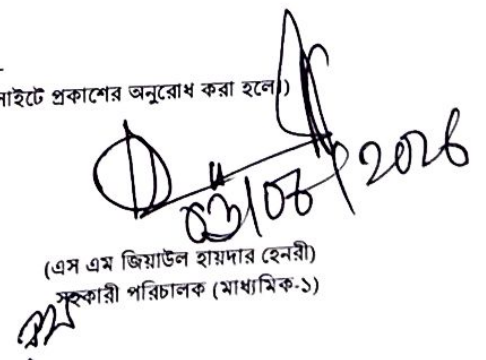 াইটে প্রকাশের অনুরোধ করা হলো)
(এস এম জিয়াউল হায়দার হেনরী)
সহকারী পরিচালক (মাধ্যমিক-১)